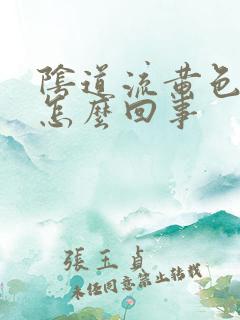 陰道流黃色
怎麼回事
張玉貞
未經同意禁止轉載